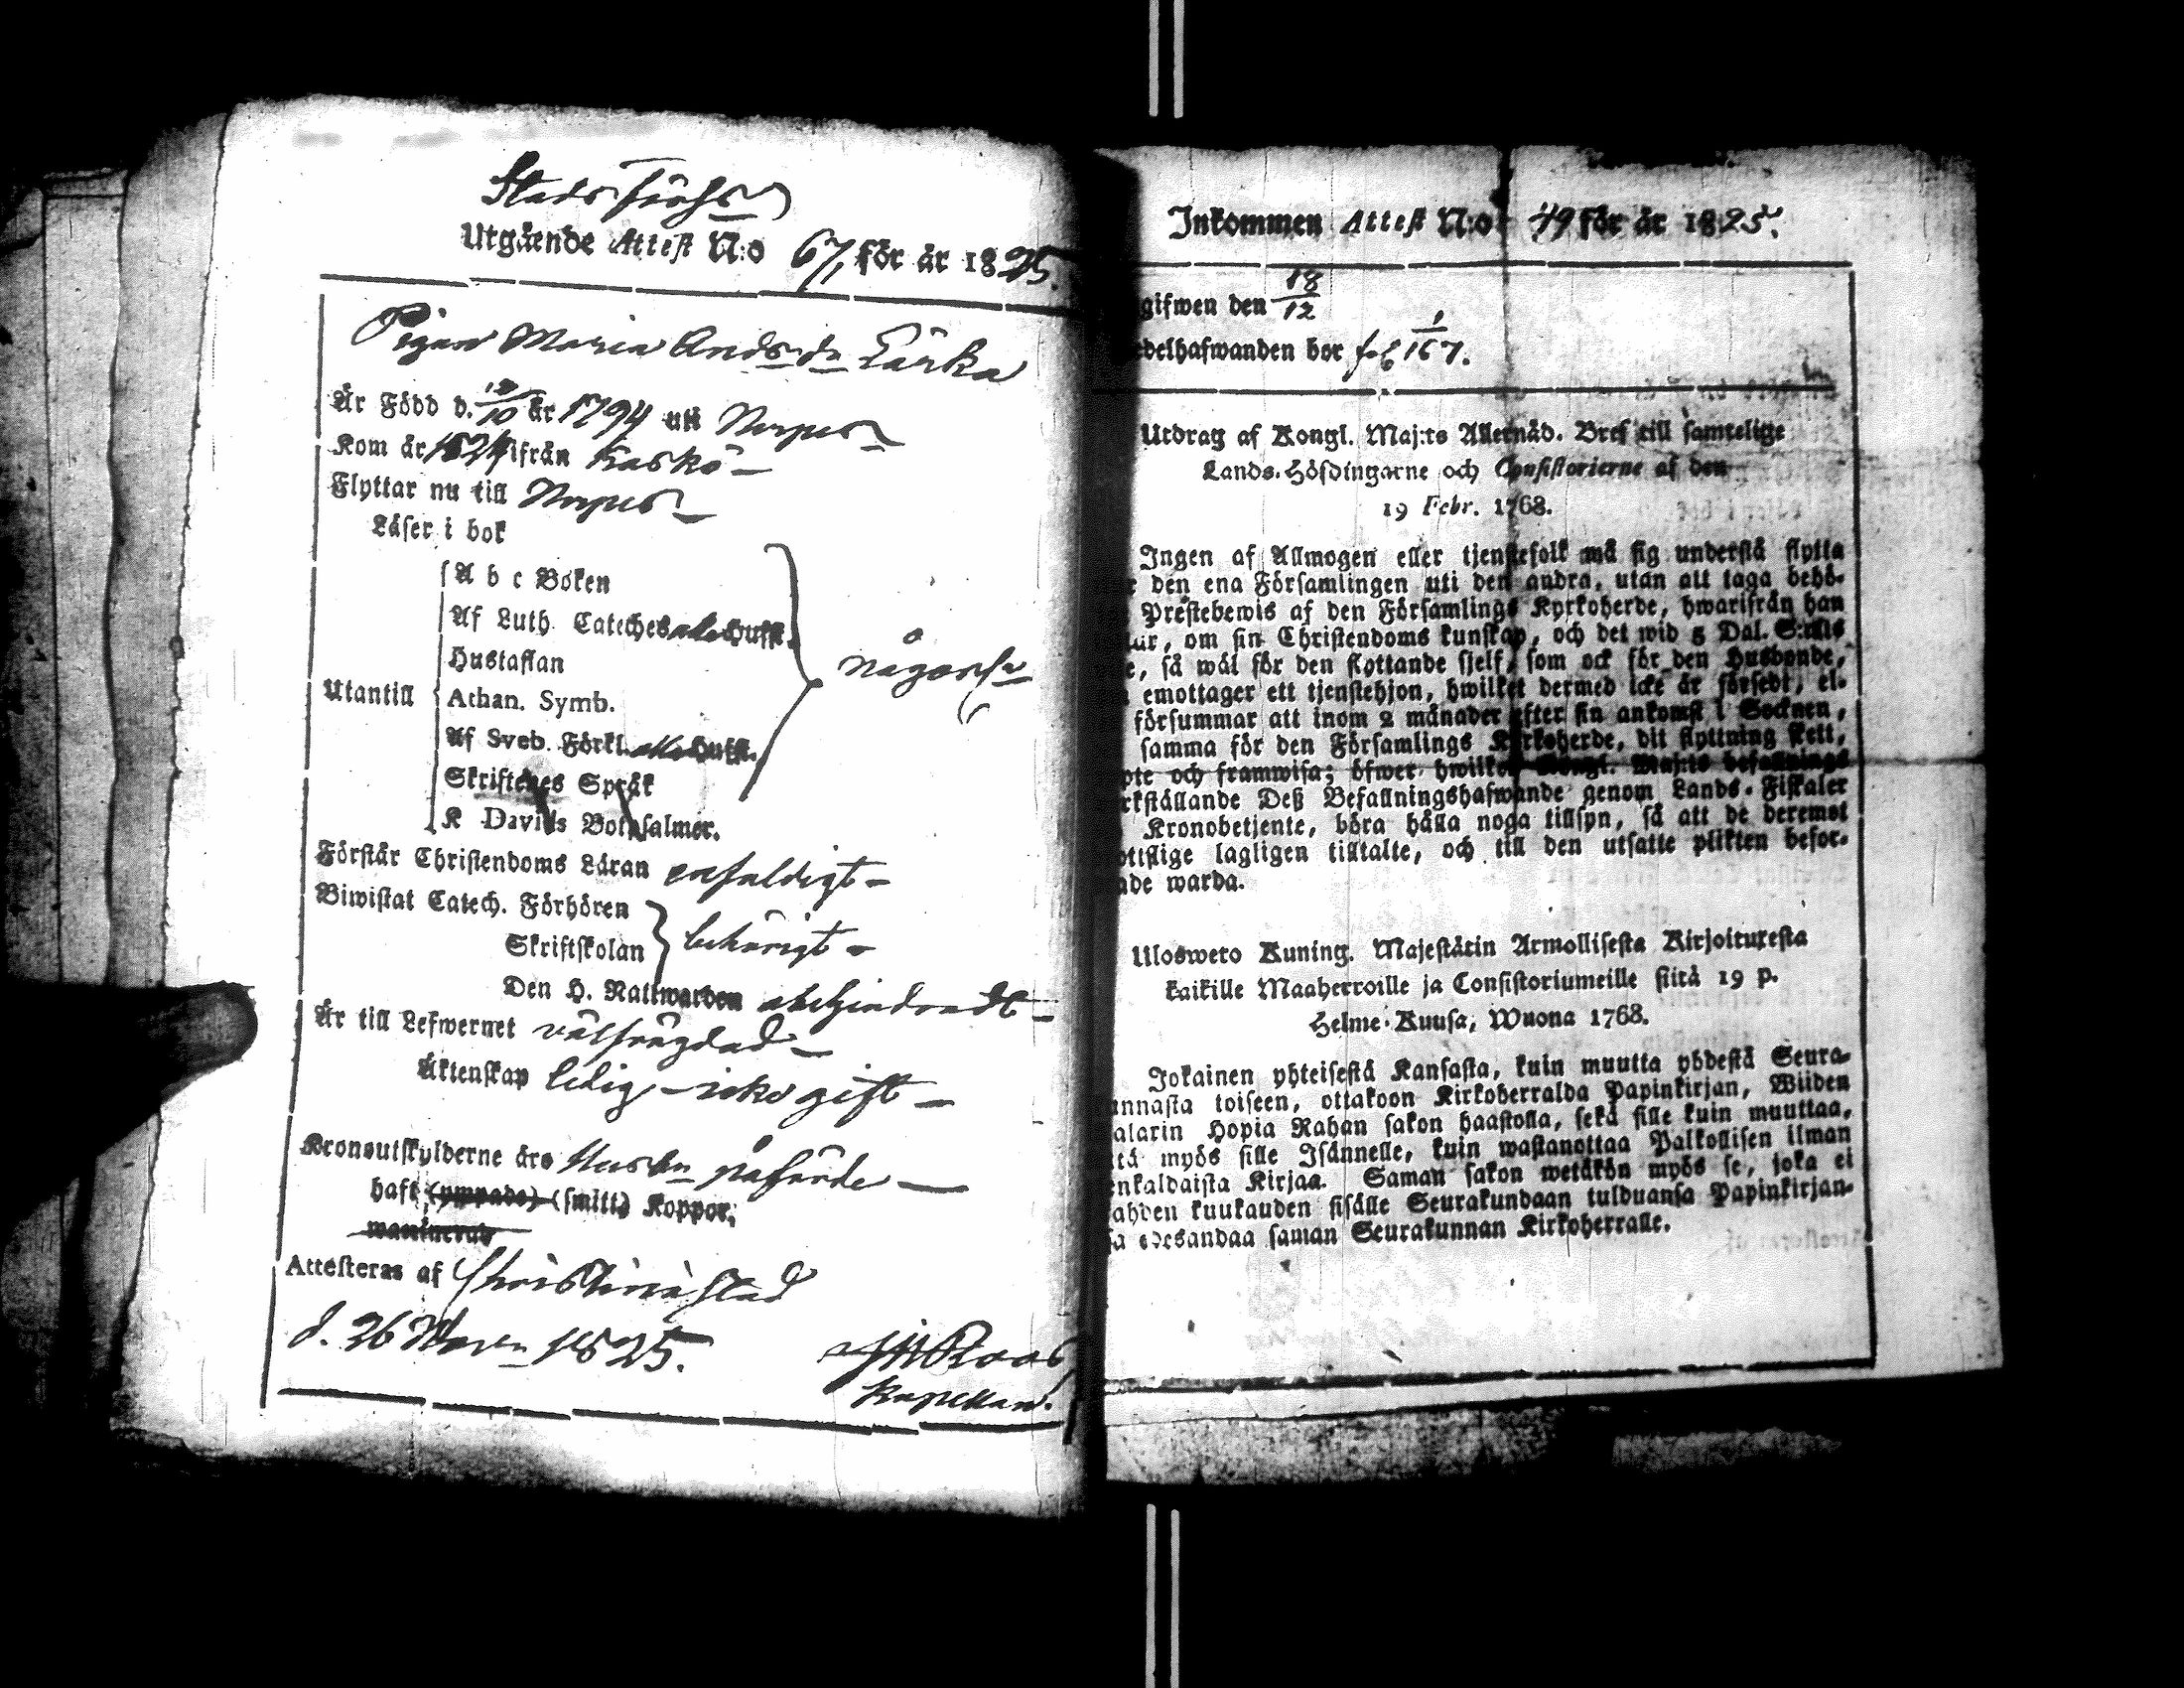 Stads Förs
Utgående Attest N:o 67, för år 1825.
Pigan Maria Andsdr Lärka
Är Född d. 12/10 år 1794 uti Nerpes
Kom år 1824 ifrån Kaskö
Flyttar nu till Nerpes
Läser i bok
A b c Boken
Af Luth. Cateches
Hustaflan
någorl.
Utantill
Athan. Symb.
Af Sveb. Förkl.
Skriftenes Språk
K Davids Botpsalmer.
Förstår Christendoms Läran enfaldigt
Biwistat Catech. Förhören
Skriftskolan
behörigt
Den H. Nattwarden obehindradt
Är till Lefwernet välfrägdad
Äktenskap ledig icke gift
Kronoutskylderne äro Husbn påförde
haft (ympade) (smitt) Koppor.
Attesteras af Christinæstad
d. 26 Novrn 1825.
Roos
Kapellan.
Inkommen Attest N:o 49 för år 1825.
gifwen den 18/12
edelhafwanden bor fol 1/167.
Utdrag af Kongl. Maj:ts Allernåd. Bref till samtelige
Lands-Höfdingarne och Consistorierne af den
19 Febr. 1768.
Ingen af Allmogen eller tjenstefolk må sig understå flytta
den ena Församlingen uti den andra, utan att taga behö-
Prestebewis af den Församlings Kyrkoherde, hwarifrån han
, om sin Christendoms kunskap, och det wid 5 Dal. S:mts
e, så wäl för den flyttande sjelf, som ock för den Husbonde,
emottager ett tjenstehjon, hwilket dermed icke är försedt, el-
försummar att inom 2 månader efter sin ankomst i Socknen,
samma för den Församlings Kyrkoherde, dit flyttning skett,
pte och framwisa; öfwer hwilket Kongl. Maj:ts befallnings
rkställande Deß Befallningshafwande genom Lands-Fiskaler
Kronobetjente, böra hålla noga tillsyn, så att de deremot
ottslige lagligen tilltalte, och till den utsatte plikten befor-
ade warda.
Uloswero Kuning. Majestätin Armollisesta Kirjoituxesta
kaikille Maaherroille ja Consistoriumeille siitä 19 p.
Helme-Kuusa, Wuona 1768.
Jokainen yhteisestä Kansasta, kuin muutta yhdestä Seura-
unnasta toiseen, ottakoon Kirkoherralda Papinkirjan, Wiiden
alarin Hopia Rahan sakon haastolla, sekä sille kuin muuttaa,
tä myös sille Isännelle, kuin wastanottaa Palkollisen ilman
enkaldaista Kirjaa. Saman sakon wetäkön myös se, joka ei
ahden kuukauden sisälle Seurakundaan tulduansa Papinkirjan-
a edesandaa saman Seurakunnan Kirkoherralle.